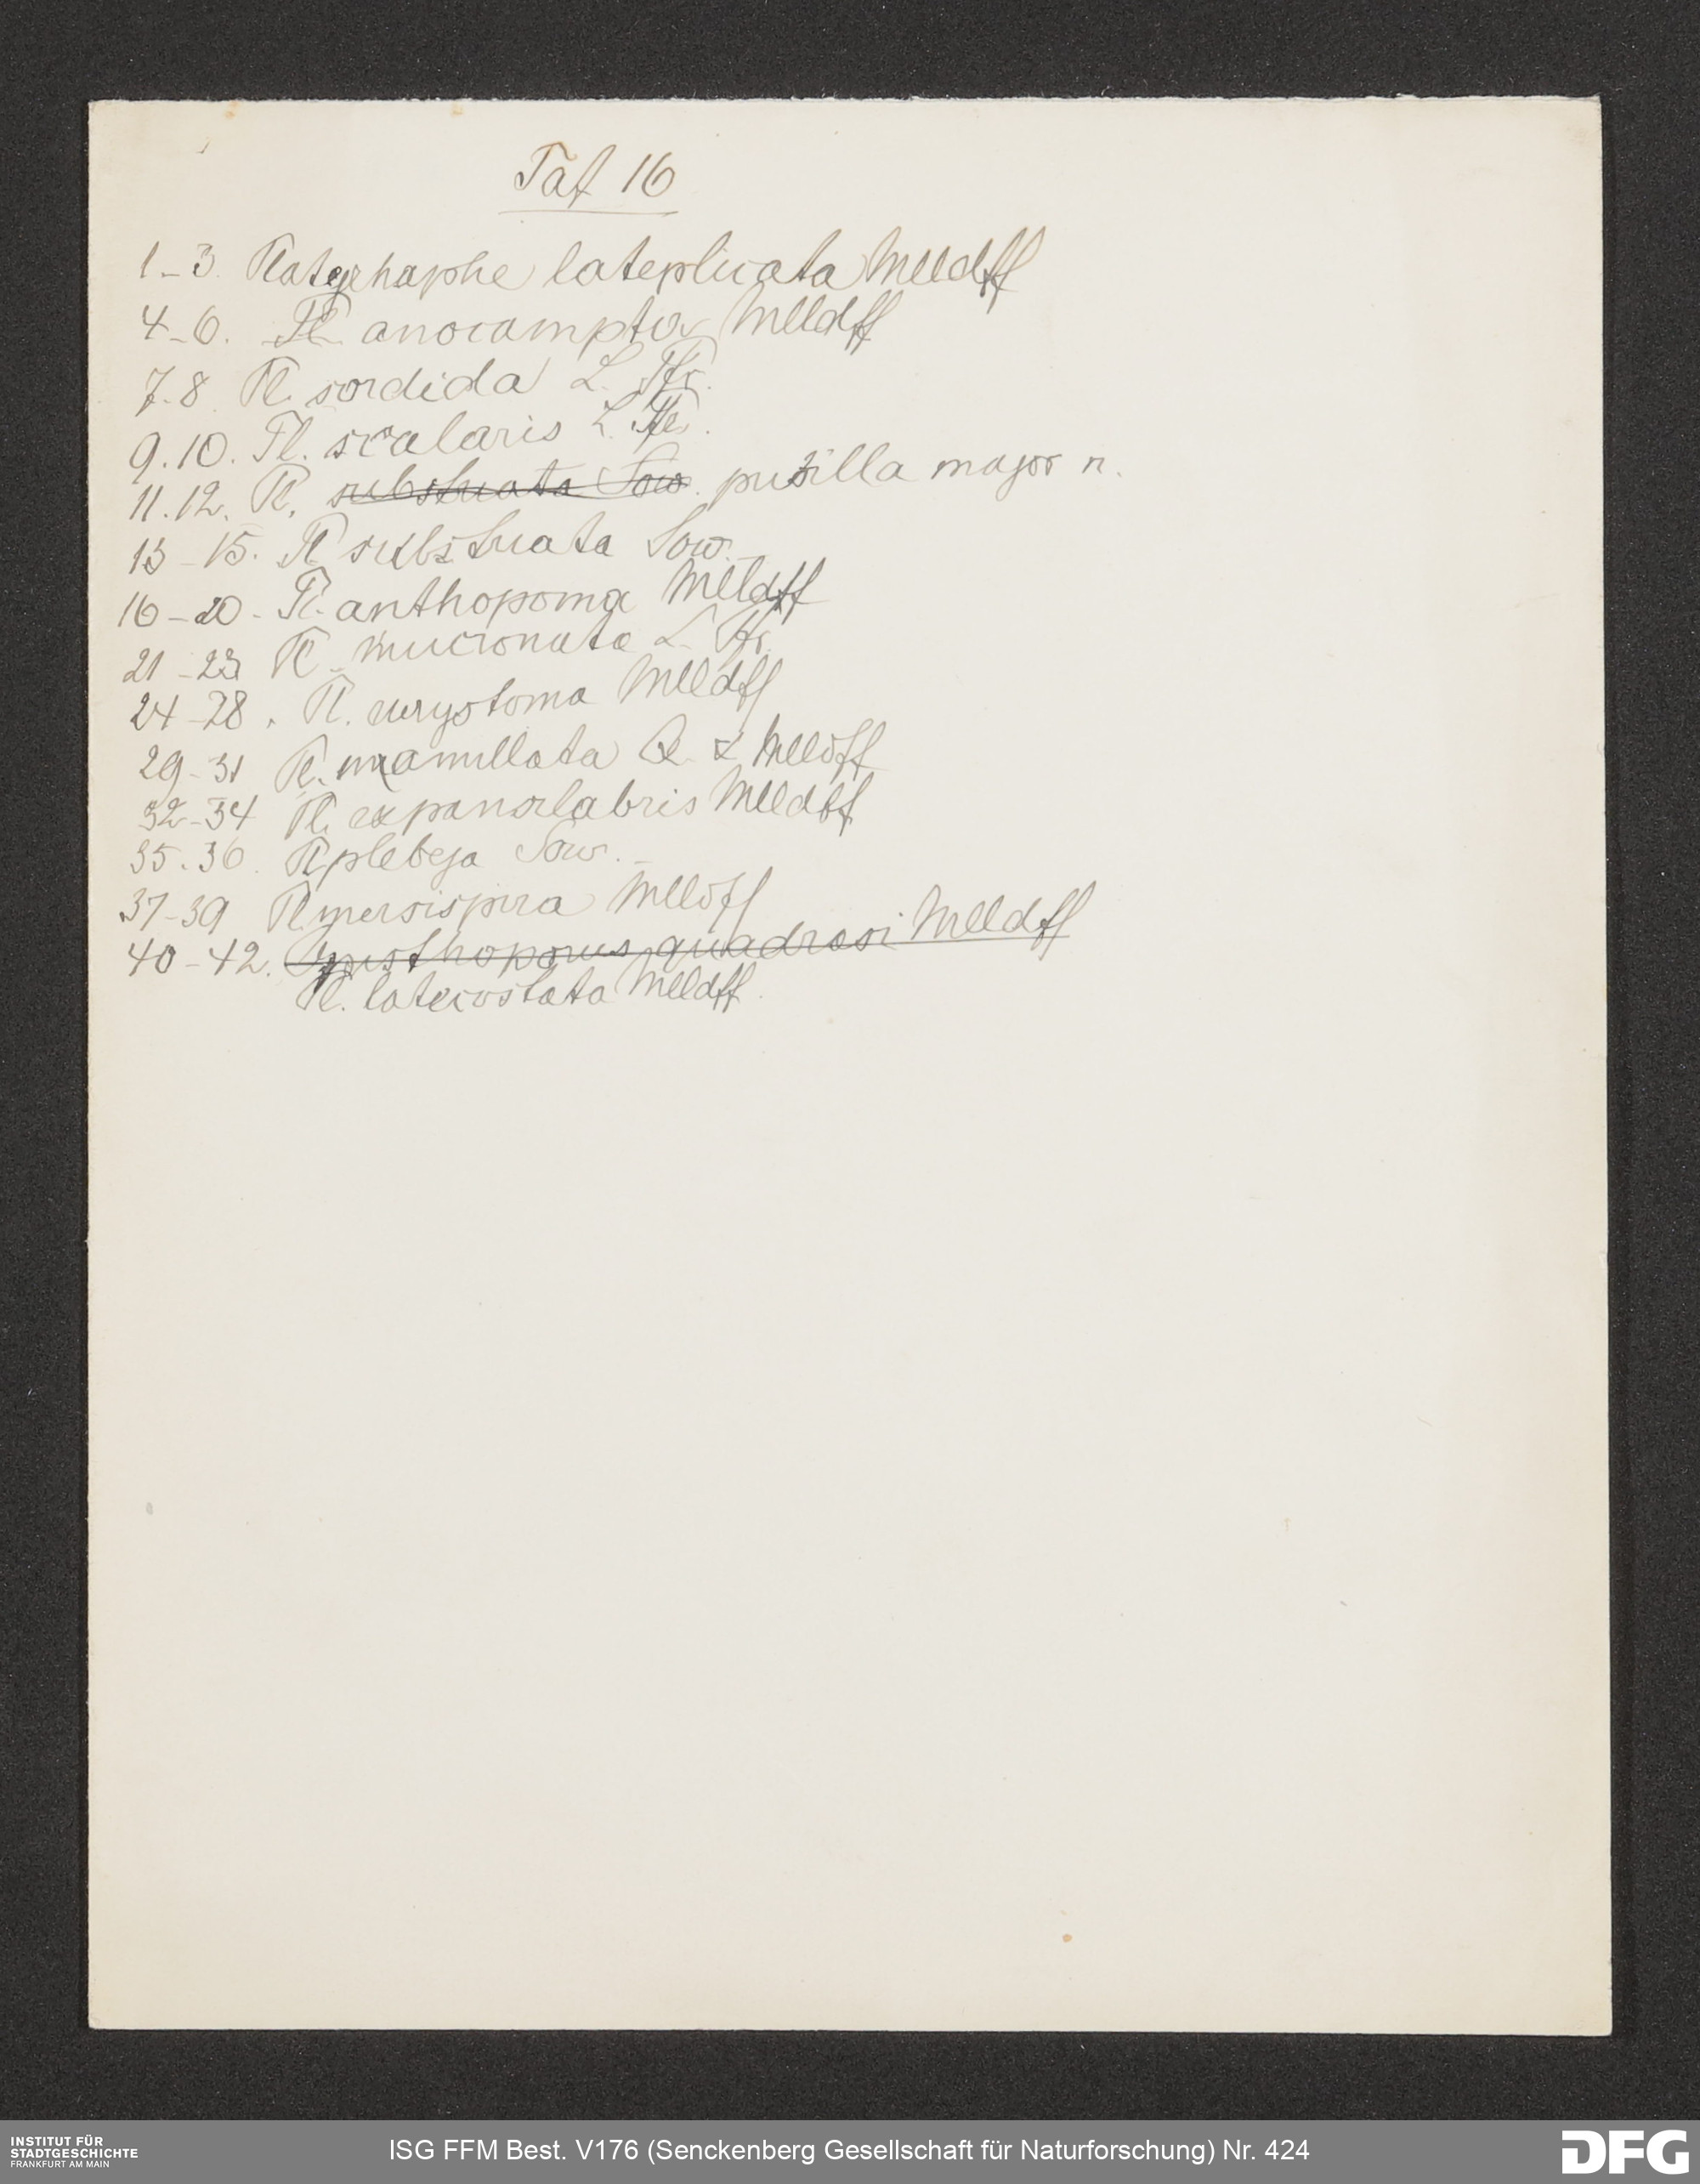 Taf 16
1-3. Platyrhaphe lateplicata Mlldff
4-6. Pl. anocampta Mlldff
7-8. Pl. sordida L. Pfr.
9.10. Pl. scalaris L. Pfr.
11.12. Pl. substriata Sow. pusilla major n.
13-15. Pl substriata Sow.
16-20. Pl. anthopoma Mlldff
21-23 Pl. mucronata L. Pfr.
24-28. Pl. eurystoma Mlldff
29-31 Pl. mamillata Q. & Mlldff
32-34 Pl. expansilabris Mlldff
35.36. Pl plebeja Sow.
37-39 Pl mersispira Mlldff
40-42. quadrasi Mlldff
Pl. latecostata Mlldff.
INSTITUT FÜR
STADTGESCHICHTE
FRANKFURT AM MAIN
ISG FFM Best. V176 (Senckenberg Gesellschaft für Naturforschung) Nr. 424
DFG